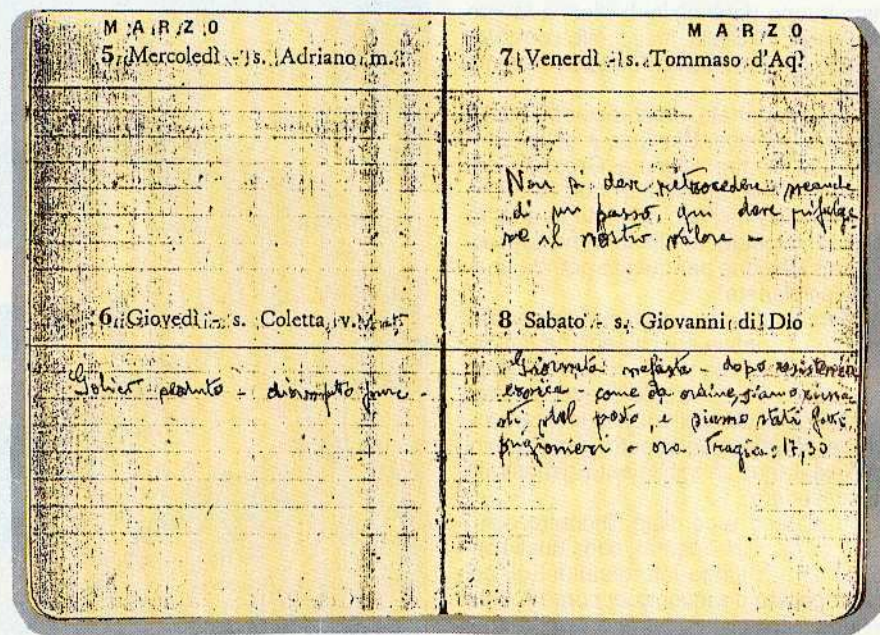 MARZO
5 Mercoledì - s. Adriano m.
6 Giovedì - s. Coletta v.
perduto -
MARZO
7 Venerdì - s. Tommaso d'Aq?
Non si deve retrocedere neanche
di un passo, qui dove rifulge
il nostro valore -
8 Sabato - s. Giovanni di Dio
Giornata nefasta - dopo resistenza
eroica - come da ordine, siamo
sul posto, e siamo stati fatti
prigionieri - ora tragica: 17,30